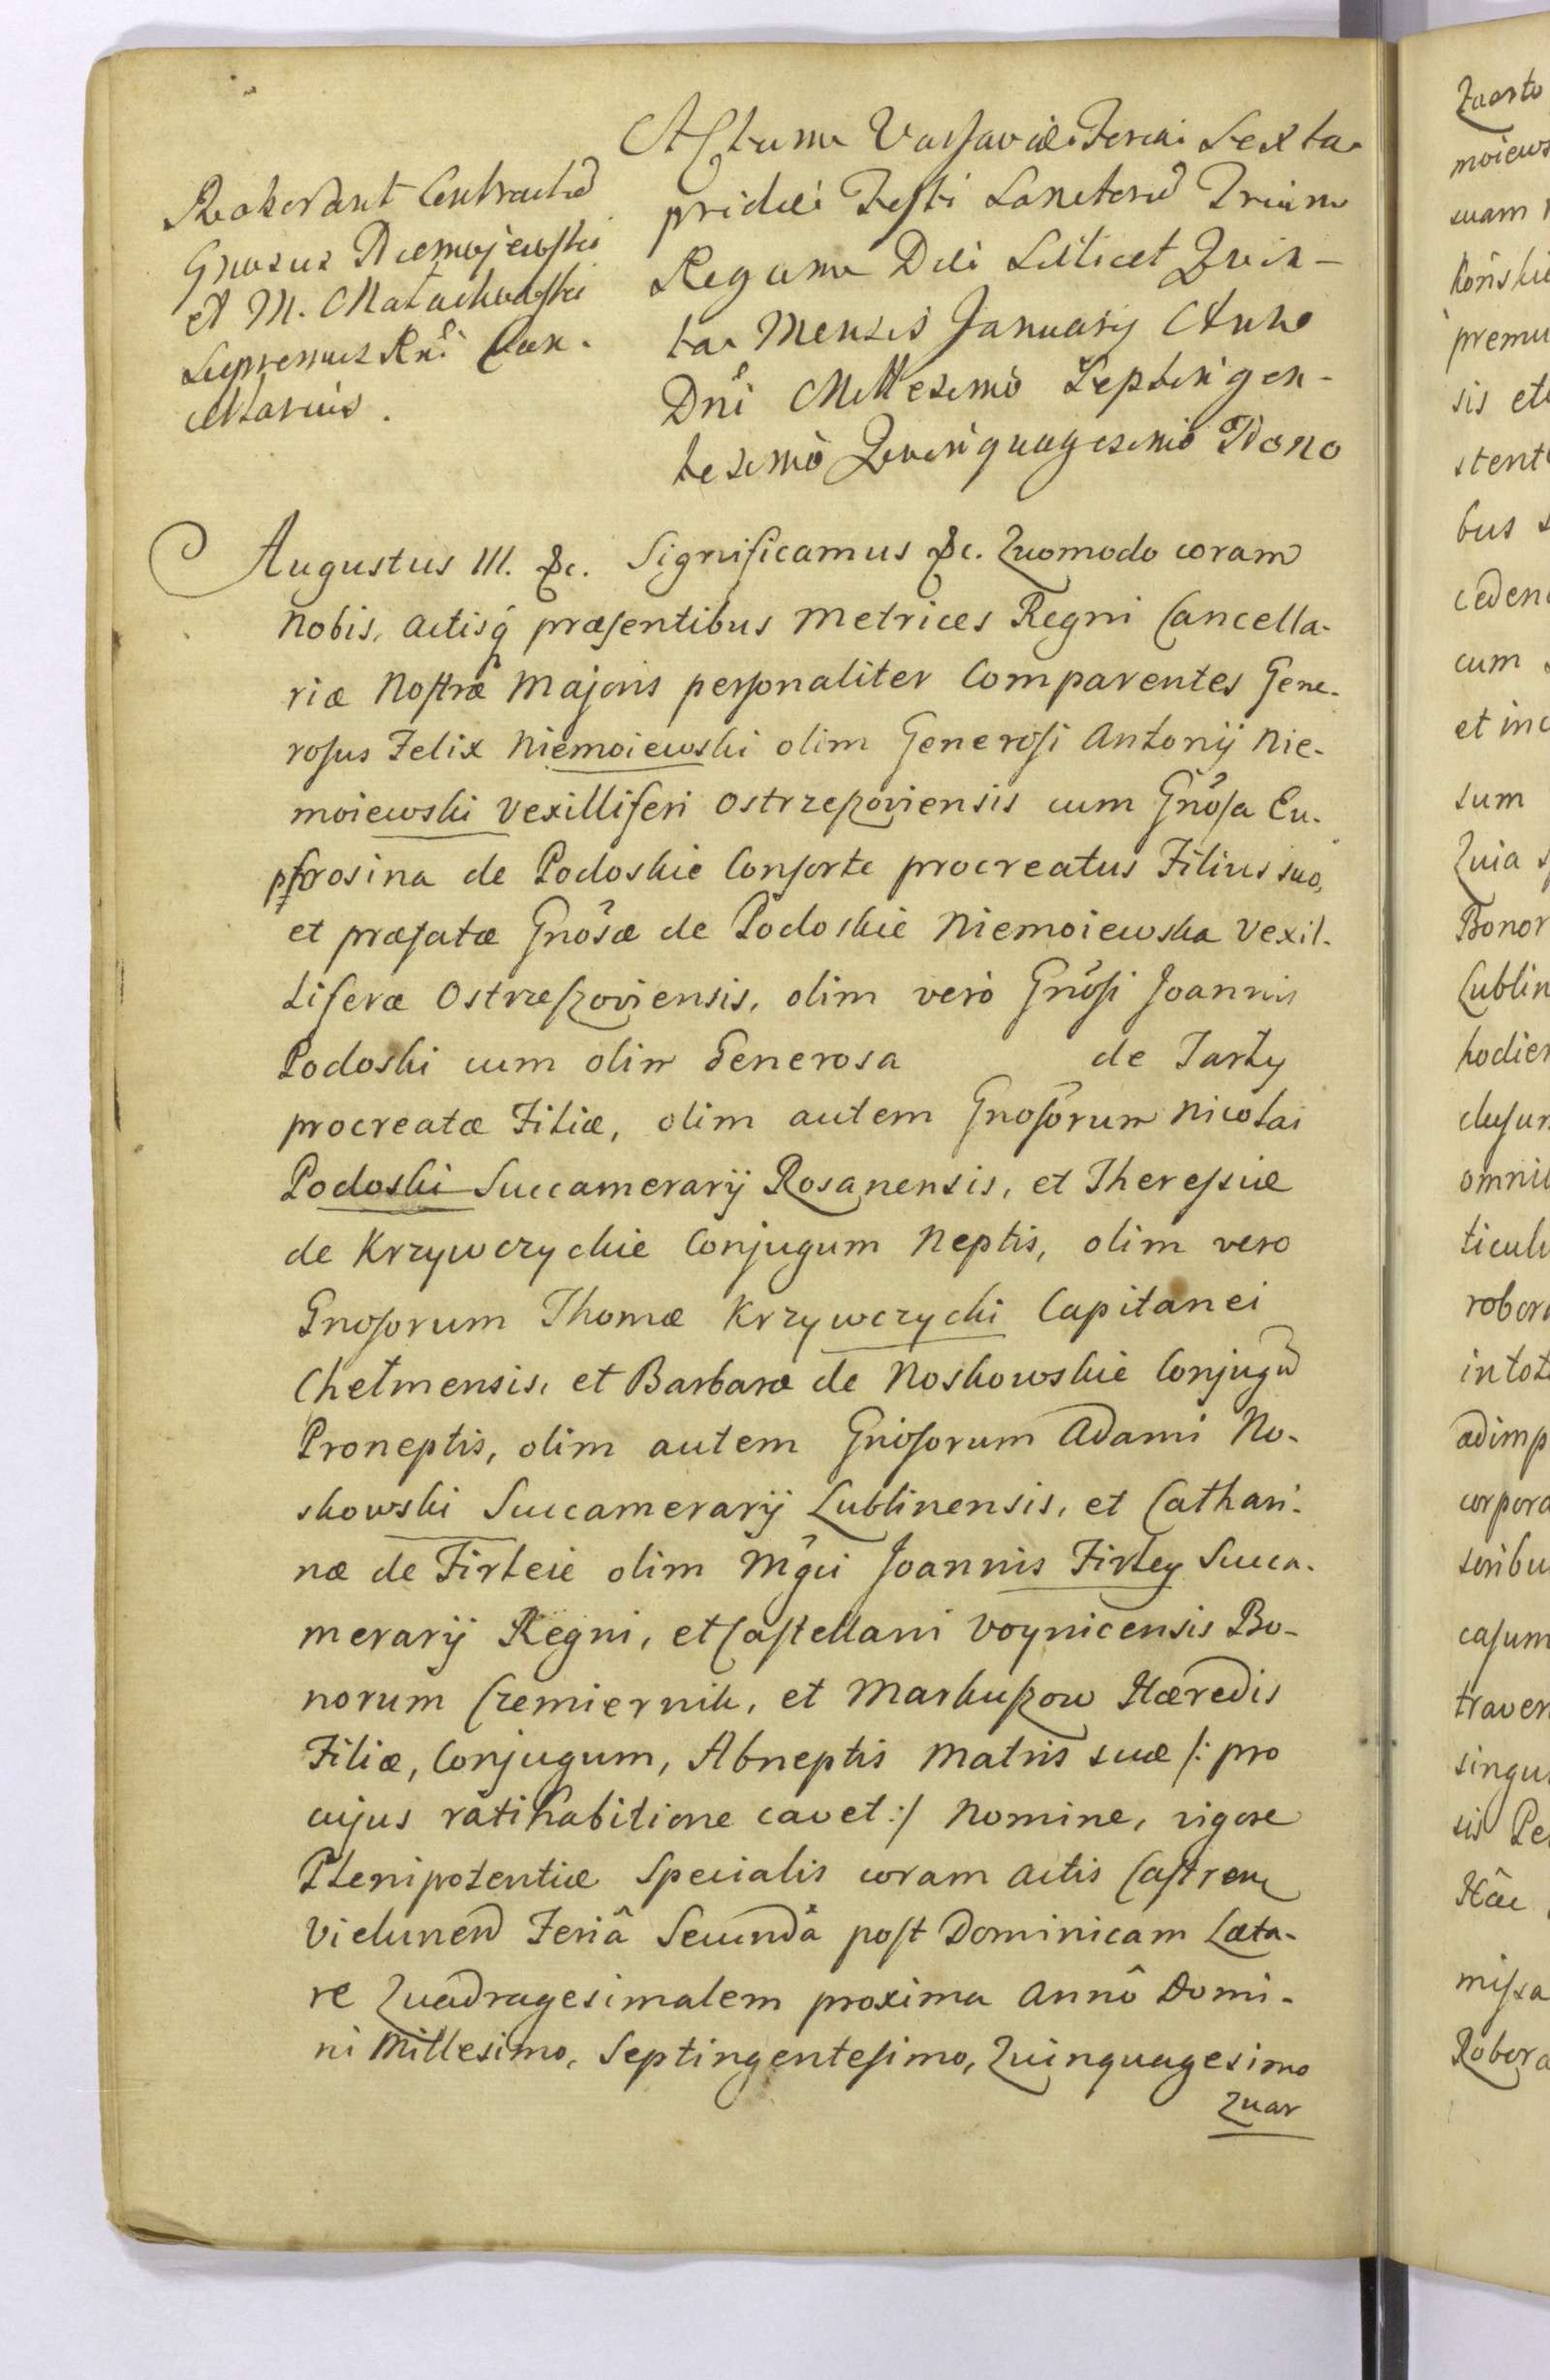 Roborant Contractũ
Gnosus Niemojewski
et M. Małachowski
Supremus Rni Can-
cellarius.
Actum Varsaviæ Feria Sexta
pridie Festi Sanctorũ Trium
Regum Die Scilicet Quin-
ta Mensis January Anno
Dni Millesimo Septingen-
tesimo Quinquagesimo Nono
Augustus III. &c. Significamus &c. Quomodo coram
Nobis, actisq́ præsentibus Metrices Regni Cancella-
riæ Nostræ Majoris personaliter Comparentes Gene-
rosus Felix Niemoiewski olim Generosi Antonij Nie-
moiewski Vexilliferi Ostrzeszoviensis cum Gnõsa Eu-
phrosina de Podoskie Consorte procreatus Filius suo,
et præfatæ Gnõsæ de Podoskie Niemoiewska Vexil-
liferæ Ostrzeszoviensis, olim verò Gnõsi Joannis
Podoski cum olim Generosa de Tarły
procreatæ Filiæ, olim autem Gnosõrum Nicolai
Podoski Succamerarij Rosanensis, et Theressiæ
de Krzywczyckie Conjugum Neptis, olim vero
Gnosorum Thomæ Krzywczycki Capitanei
Chełmensis, et Barbaræ de Noskowskie Conjugũ
Proneptis, olim autem Gnõsorum Adami No-
skowski Succamerarij Lublinensis, et Cathari-
næ de Firleie olim Mg̃ci Joannis Firley Succa-
merarij Regni, et Castellani Voynicensis Bo-
norum Czemiernik, et Markuszow Hæredis
Filiæ, Conjugum, Abneptis Matris suæ /: pro
cujus ratihabitione cavet :/ Nomine, vigore
Plenipotentiæ Specialis coram actis Castren
Vielunen Feriâ Secundâ post Dominicam Læta-
re Quadragesimalem proxima Annô Domi-
ni Millesimo, Septingentesimo, Quinquagesimo
Quar
Quarto
moiews
suam
premu
sis et
stent
bus
ceden
cum
et inc
sum
Quia
Bonor
Lublin
hodier
clusur
omni
ticul
robor
in tot
adimp
corpora
casum
traven
singu
sis Pe
Hâc
missa
Robora